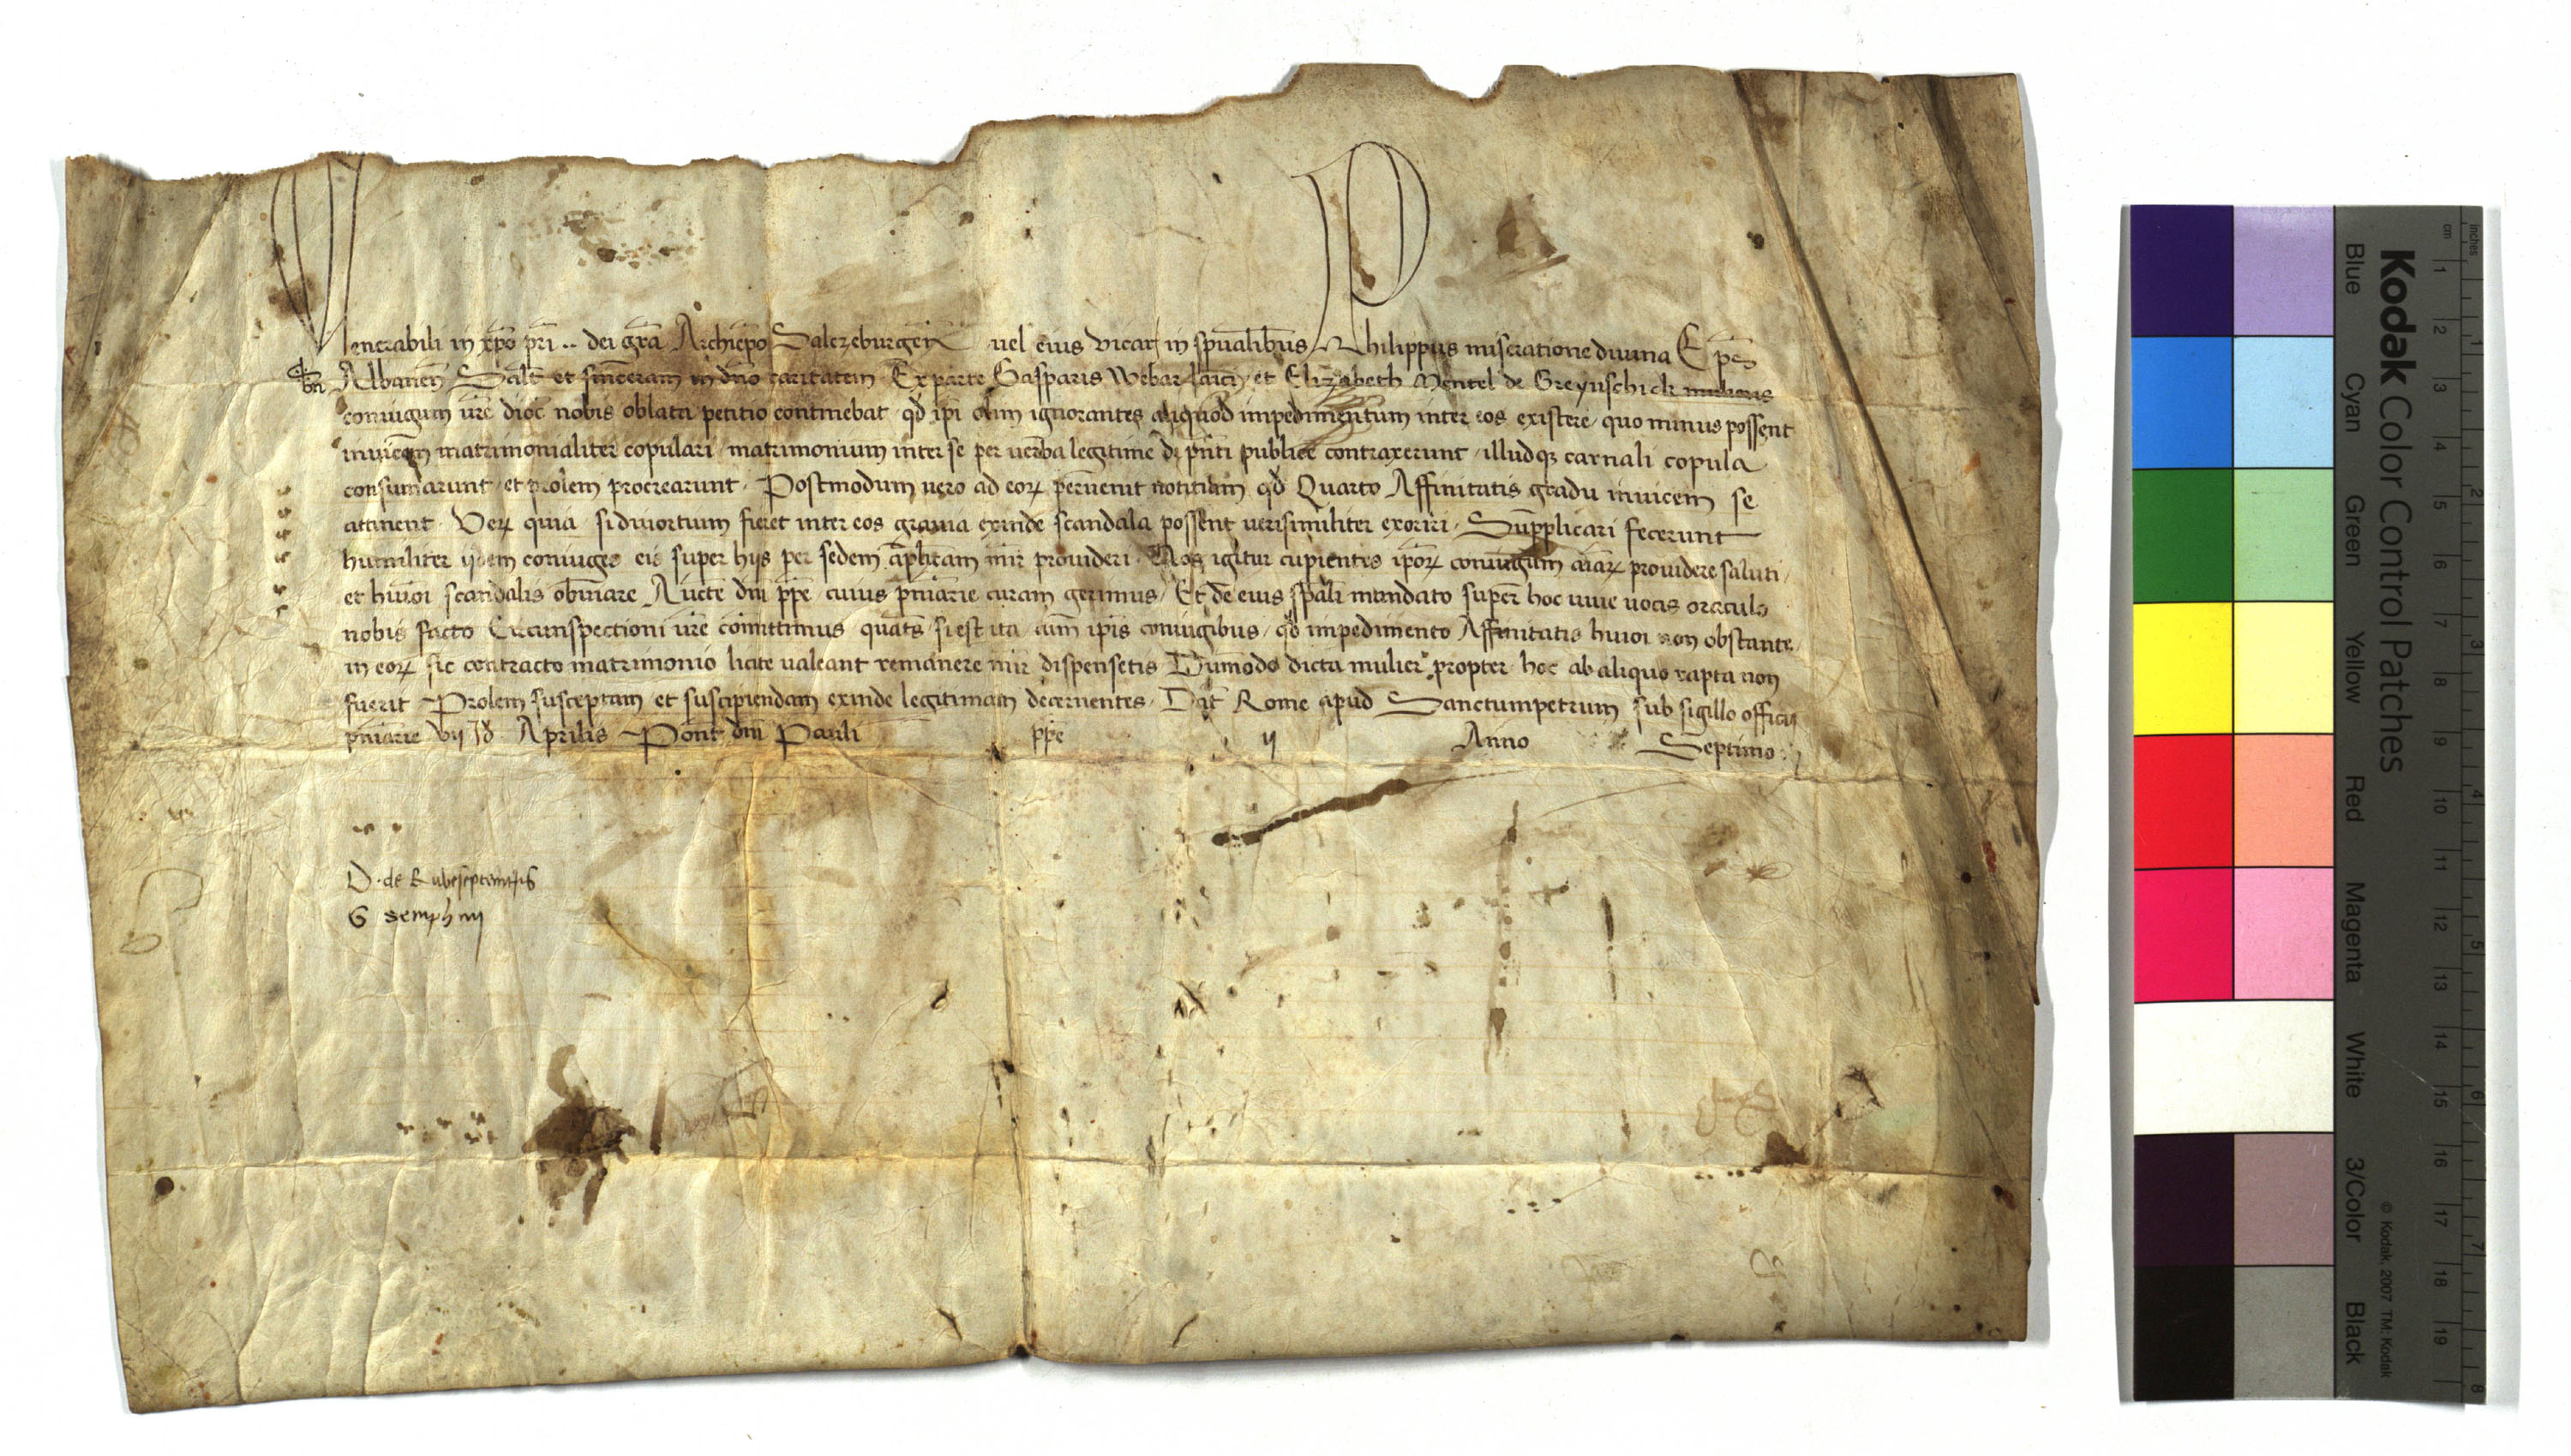 Venerabili in xpo pri .. dei gra Archiepo Salczeburgen uel eius vicar in spualibus Philippus miseratione diuina Eps
tbn Albanen Salt et sinceram in dno caritatem Ex parte Gasparis Webar laici et Elizabeth Mentel de Greynschick mulieris
coniugum ure dioc nobis oblata petitio continebat qd ipi olim ignorantes aliquod impedimentum inter eos existere quo minus possent
inuicem matrimonialiter copulari matrimonium inter se per uerba legitime de pnti publice contraxerunt illudqz carnali copula
consumarunt et prolem procrearunt. Postmodum uero ad eorꝝ peruenit notitiam qd Quarto Affinitatis gradu inuicem se
attinent. Verꝝ quia si diuortium fieret inter eos grauia exinde scandala possent uerisimiliter exoriri. Supplicari fecerunt
humiliter ijdem coniuges eis super hijs per sedem aplicam mir prouideri. Nos igitur cupientes ipoꝝ coniugum aiaꝝ prouidere saluti
et huioi scandalis obuiare Aucte dni ppe cuius pniarie curam gerimus Et de eius spali mandato super hoc uiue uocis oraculo
nobis facto Circumspectioni ure comittimus quats si est ita cum ipis coniugibus qd impedimento Affinitatis huioi non obstante
in eorꝝ sic contracto matrimonio licite ualeant remanere mir dispensetis Dumodo dicta mulier propter hoc ab aliquo rapta non
fuerit Prolem susceptam et suscipiendam exinde legitimam decernentes. Dat Rome apud Sanctumpetrum sub sigillo officij
pniarie vij Id Aprilis Pont dni Pauli ppe ij Anno Septimo
D. de
G
Kodak Color Control Patches
Blue Cyan Green Yellow Red Magenta White 3/Color Black
© Kodak, 2007 TM: Kodak
inches 1 2 3 4 5 6 7 8
cm 1 2 3 4 5 6 7 8 9 10 11 12 13 14 15 16 17 18 19